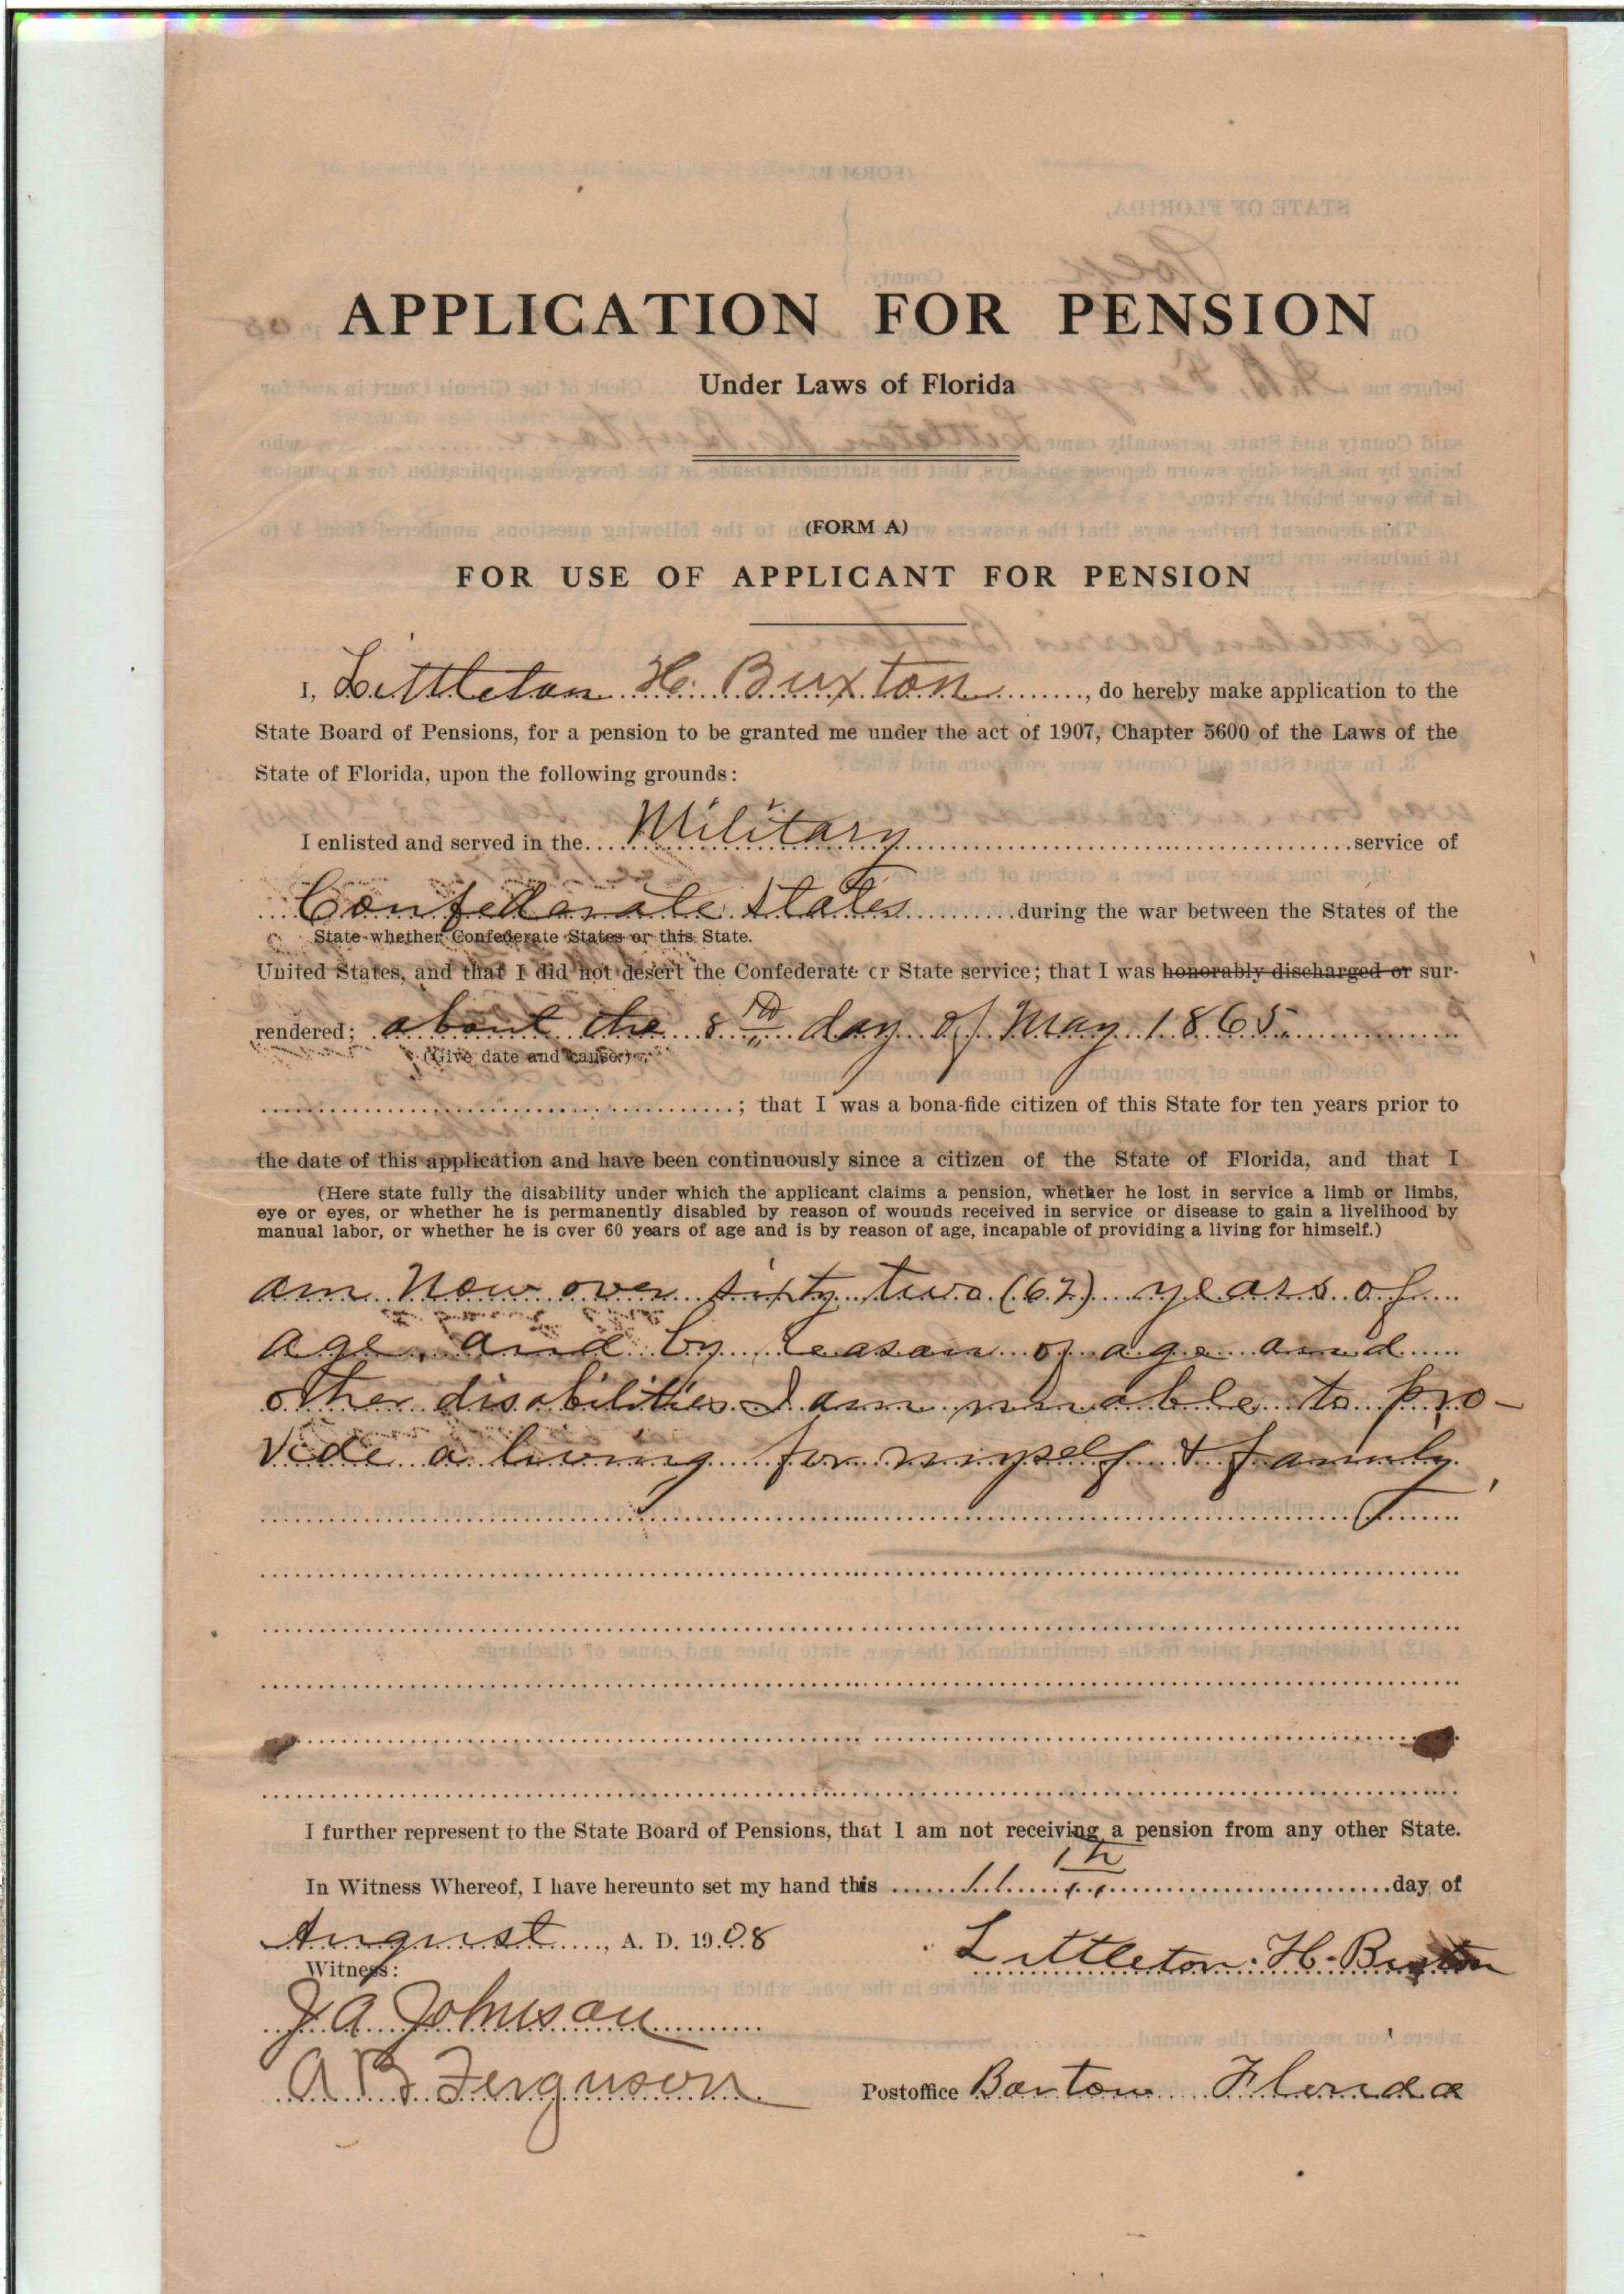 APPLICATION FOR PENSION
Under Laws of Florida
(FORM A)
FOR USE OF APPLICANT FOR PENSION
I, Littleton H. Buxton, do hereby make application to the
State Board of Pensions, for a pension to be granted me under the act of 1907, Chapter 5600 of the Laws of the
State of Florida, upon the following grounds:
I enlisted and served in the Military service of
Confederate States during the war between the States of the
State whether Confederate States or this State.
United States, and that I did not desert the Confederate or State service; that I was honorably discharged or sur-
rendered; about the 8th day of May 1865
(Give date and cause.)
; that I was a bona-fide citizen of this State for ten years prior to
the date of this application and have been continuously since a citizen of the State of Florida, and that I
(Here state fully the disability under which the applicant claims a pension, whether he lost in service a limb or limbs,
eye or eyes, or whether he is permanently disabled by reason of wounds received in service or disease to gain a livelihood by
manual labor, or whether he is over 60 years of age and is by reason of age, incapable of providing a living for himself.)
am now over sixty two (62) years of
age, and by reason of age and
other disabilities I am unable to pro-
vide a living for myself & family.
I further represent to the State Board of Pensions, that I am not receiving a pension from any other State.
In Witness Whereof, I have hereunto set my hand this 11th day of
August, A. D. 1908
Littleton. H. Buxton
Witness:
J. A. Johnson
A B Ferguson
Postoffice Bartow Florida